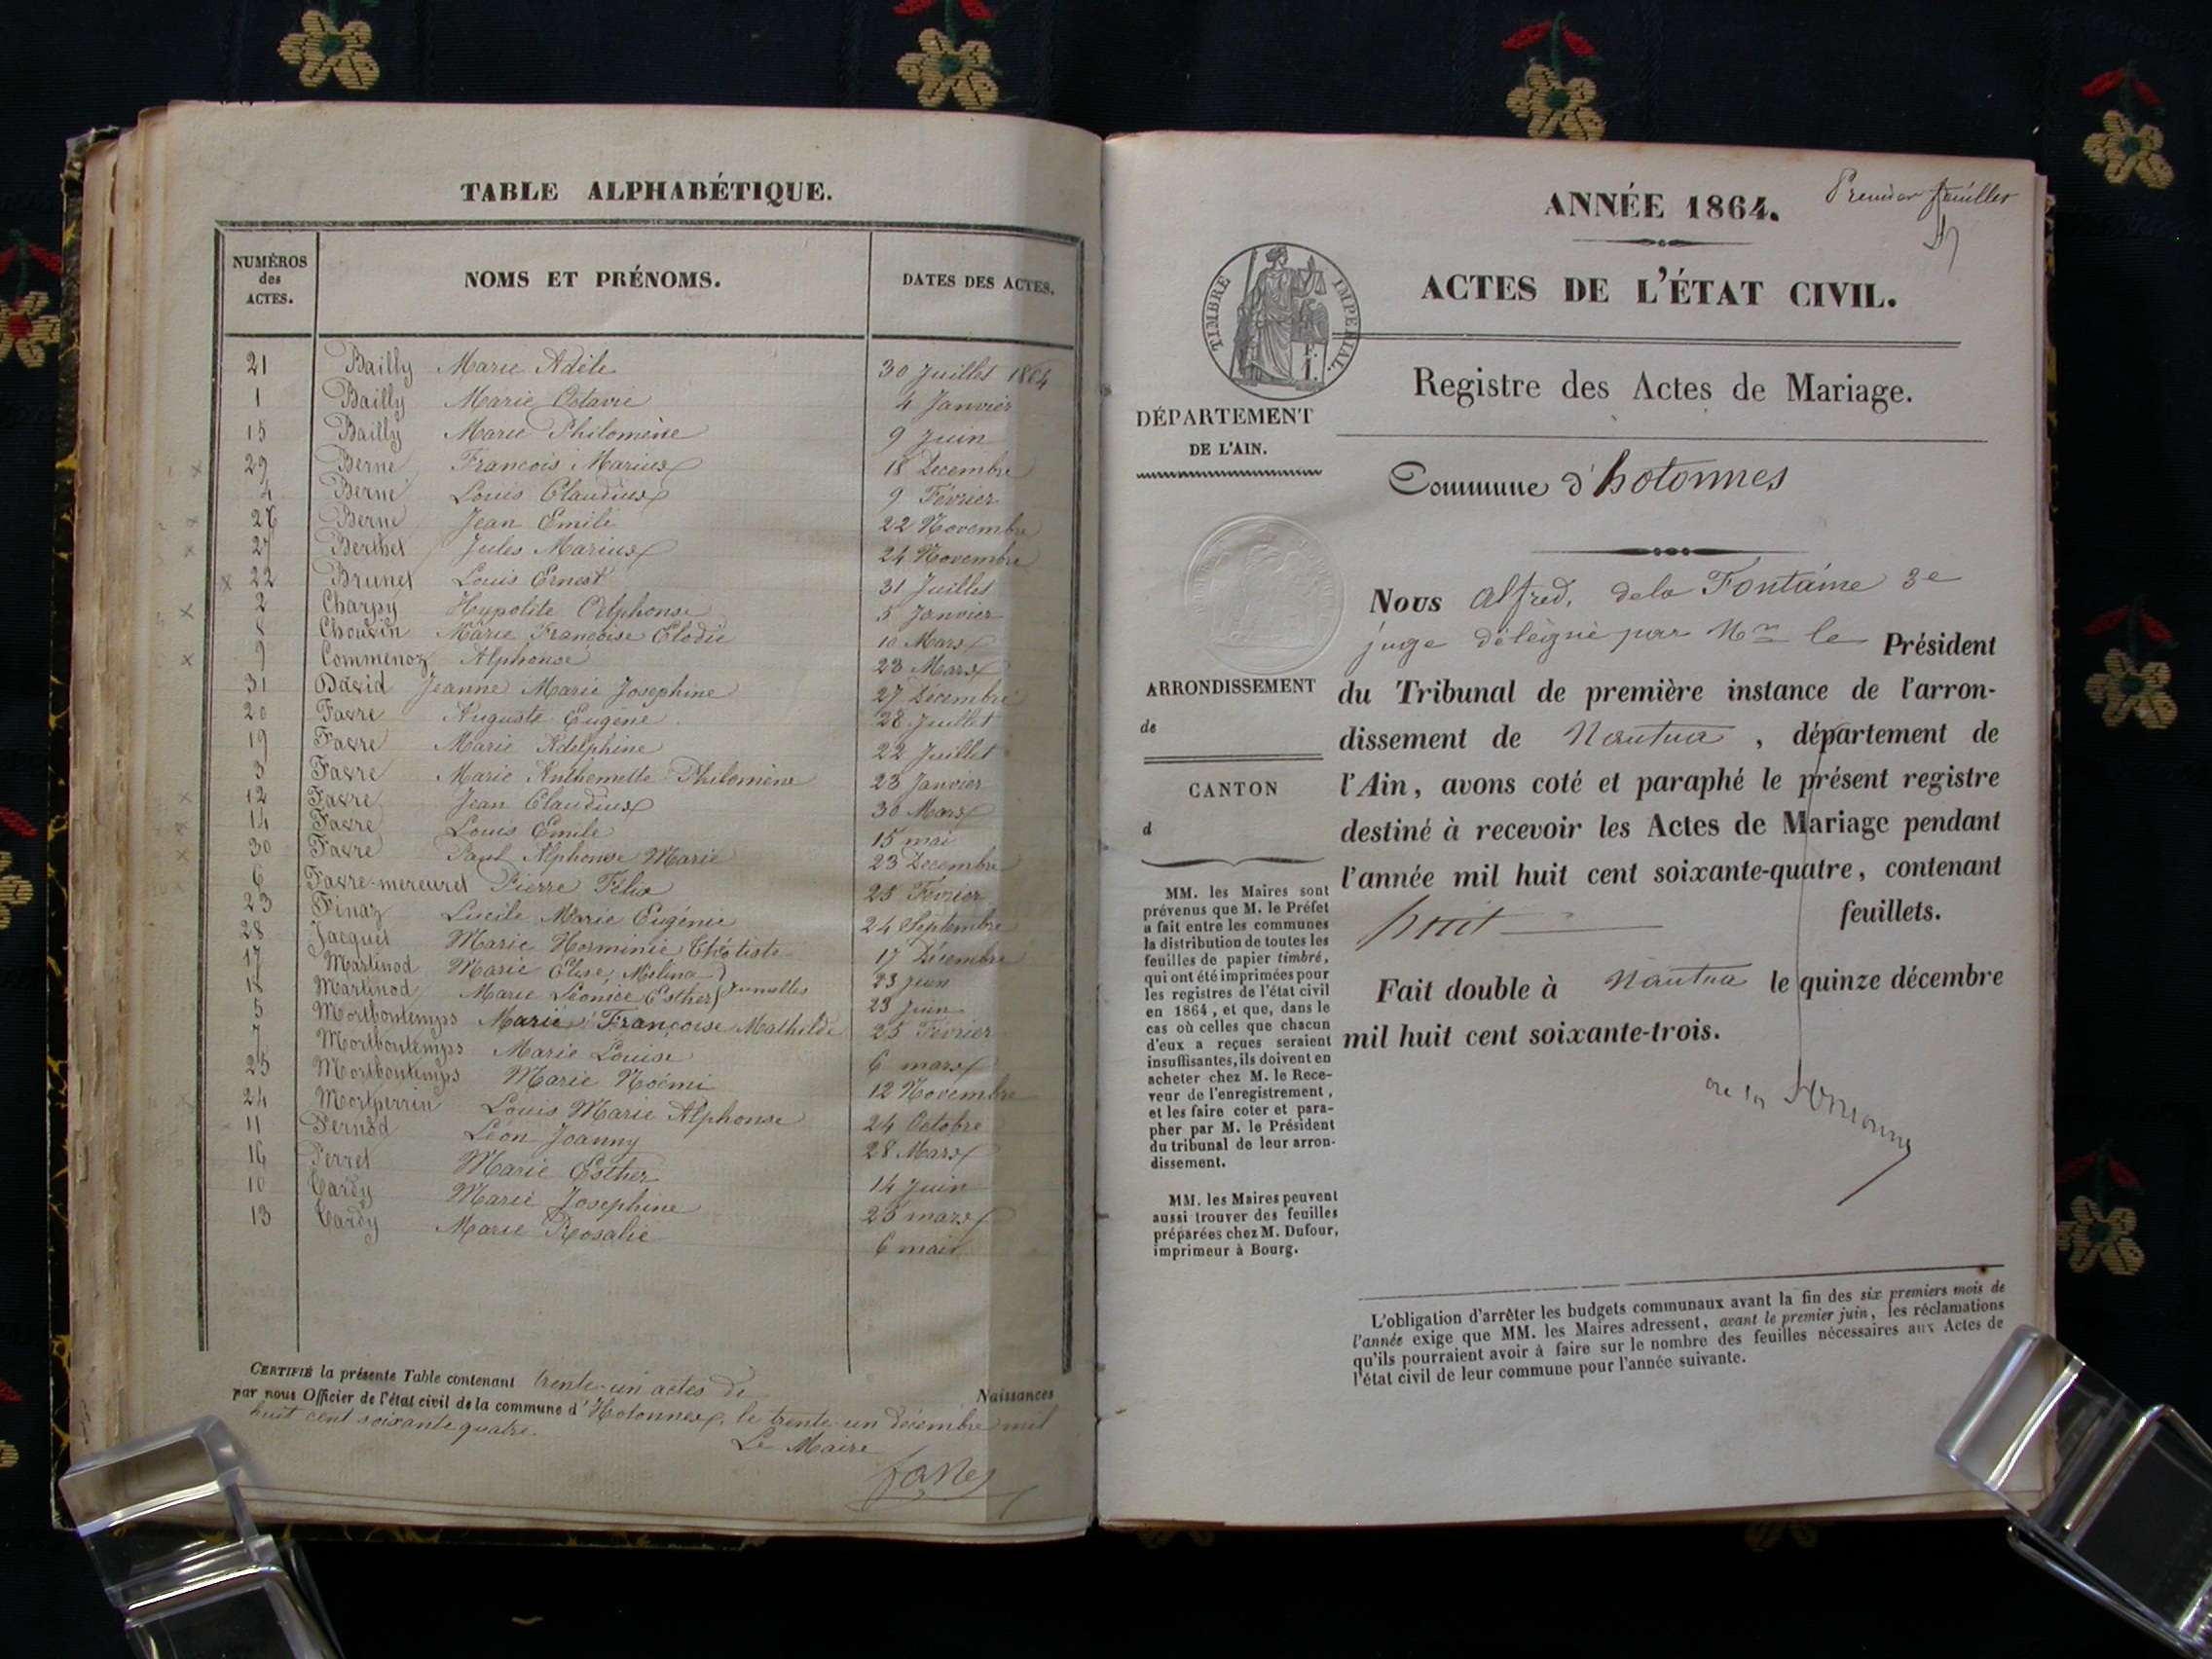 TABLE ALPHABÉTIQUE.
NUMÉROS des ACTES.
NOMS ET PRÉNOMS.
DATES DES ACTES.
21 Bailly Marie Adèle 30 Juillet 1864
1 Bailly Marie Octavie 4 Janvier
15 Bailly Marie Philomène 9 Juin
29 Berne François Marius 18 Decembre
4 Berne Louis Claudius 9 Février
26 Berne Jean Emile 22 Novembre
27 Berthet Jules Marius 24 Novembre
22 Brunet Louis Ernest 31 Juillet
2 Charpy Hypolite Delphonse 5 Janvier
8 Chouvin Marie Françoise Elodie 10 Mars
9 Commenoz Alphonse 23 Mars
31 David Jeanne Marie Josephine 27 Décembre
20 Favre Auguste Eugène 28 Juillet
19 Favre Marie Adelphine 22 Juillet
3 Favre Marie Anthemette Philomène 23 Janvier
12 Favre Jean Claudius 30 Mars
14 Favre Louis Emile 15 mai
30 Favre Paul Alphonse Marie 23 Decembre
6 Favre-mercuret Pierre Félix 25 Février
23 Finaz Lucile Marie Eugénie 24 Septembre
28 Jacquet Marie Herminie Théotiste 17 Décembre
17 Martinod Marie Elise Mélina 23 juin
18 Martinod Marie Léonice Esther Jumelles 23 Juin
5 Mortbontemps Marie Françoise Mathilde 25 Février
7 Mortbontemps Marie Louise 6 mars
25 Mortbontemps Marie Noémi 12 Novembre
24 Mortperrin Louis Marie Alphonse 24 Octobre
11 Pernod Léon Joanny 28 Mars
16 Perret Marie Esther 14 Juin
10 Tardy Marie Josephine 25 mars
13 Tardy Marie Rosalie 6 mai
CERTIFIÉ la présente Table contenant trente-un actes de Naissances
par nous Officier de l'état civil de la commune d'Hotonnes, le trente-un décembre mil
huit cent soixante quatre.
Le Maire
ANNÉE 1864.
Premier feuillet
TIMBRE IMPERIAL.
ACTES DE L'ÉTAT CIVIL.
Registre des Actes de Mariage.
DÉPARTEMENT
DE L'AIN.
Commune d'hotonnes
Nous Alfred, dela Fontaine 3e
juge délégué par Mr le Président
du Tribunal de première instance de l'arron-
dissement de Nantua, département de
l'Ain, avons coté et paraphé le présent registre
destiné à recevoir les Actes de Mariage pendant
l'année mil huit cent soixante-quatre, contenant
huit feuillets.
Fait double à Nantua le quinze décembre
mil huit cent soixante-trois.
ARRONDISSEMENT
de
CANTON
d
MM. les Maires sont
prévenus que M. le Préfet
a fait entre les communes
la distribution de toutes les
feuilles de papier timbré,
qui ont été imprimées pour
les registres de l'état civil
en 1864, et que, dans le
cas où celles que chacun
d'eux a reçues seraient
insuffisantes, ils doivent en
acheter chez M. le Rece-
veur de l'enregistrement,
et les faire coter et para-
pher par M. le Président
du tribunal de leur arron-
dissement.
MM. les Maires peuvent
aussi trouver des feuilles
préparées chez M. Dufour,
imprimeur à Bourg.
L'obligation d'arrêter les budgets communaux avant la fin des six premiers mois de
l'année exige que MM. les Maires adressent, avant le premier juin, les réclamations
qu'ils pourraient avoir à faire sur le nombre des feuilles nécessaires aux Actes de
l'état civil de leur commune pour l'année suivante.